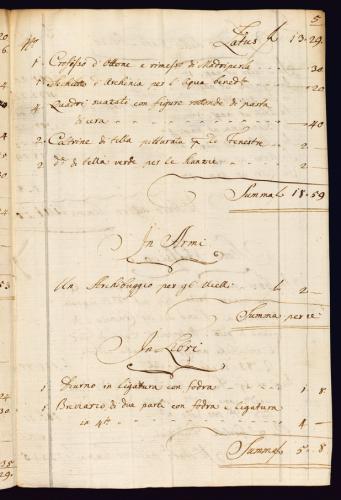 5
Latus f 13 . 29 .
1 Crosofisso d'Ottone e rimesso di Madriperle 30
1 d'Archimia per l'Aqua bened.ta 20
4 Quadri con figure rotonde di pasta
di cera 40
2 Coltrine di tella per le Fenestre 2 —
2 d.e di tella verde per le 2 —
Summa f 18 . 59
In Armi
Un Archibuggio per gl'Ucelli f 2 —
Summa per se
In Libri
1 Diurno in ligatura con fodra 1 . 8
1 Breviario di due parti con fodra e ligatura
in 4.to 4 —
Summa f 5 . 8